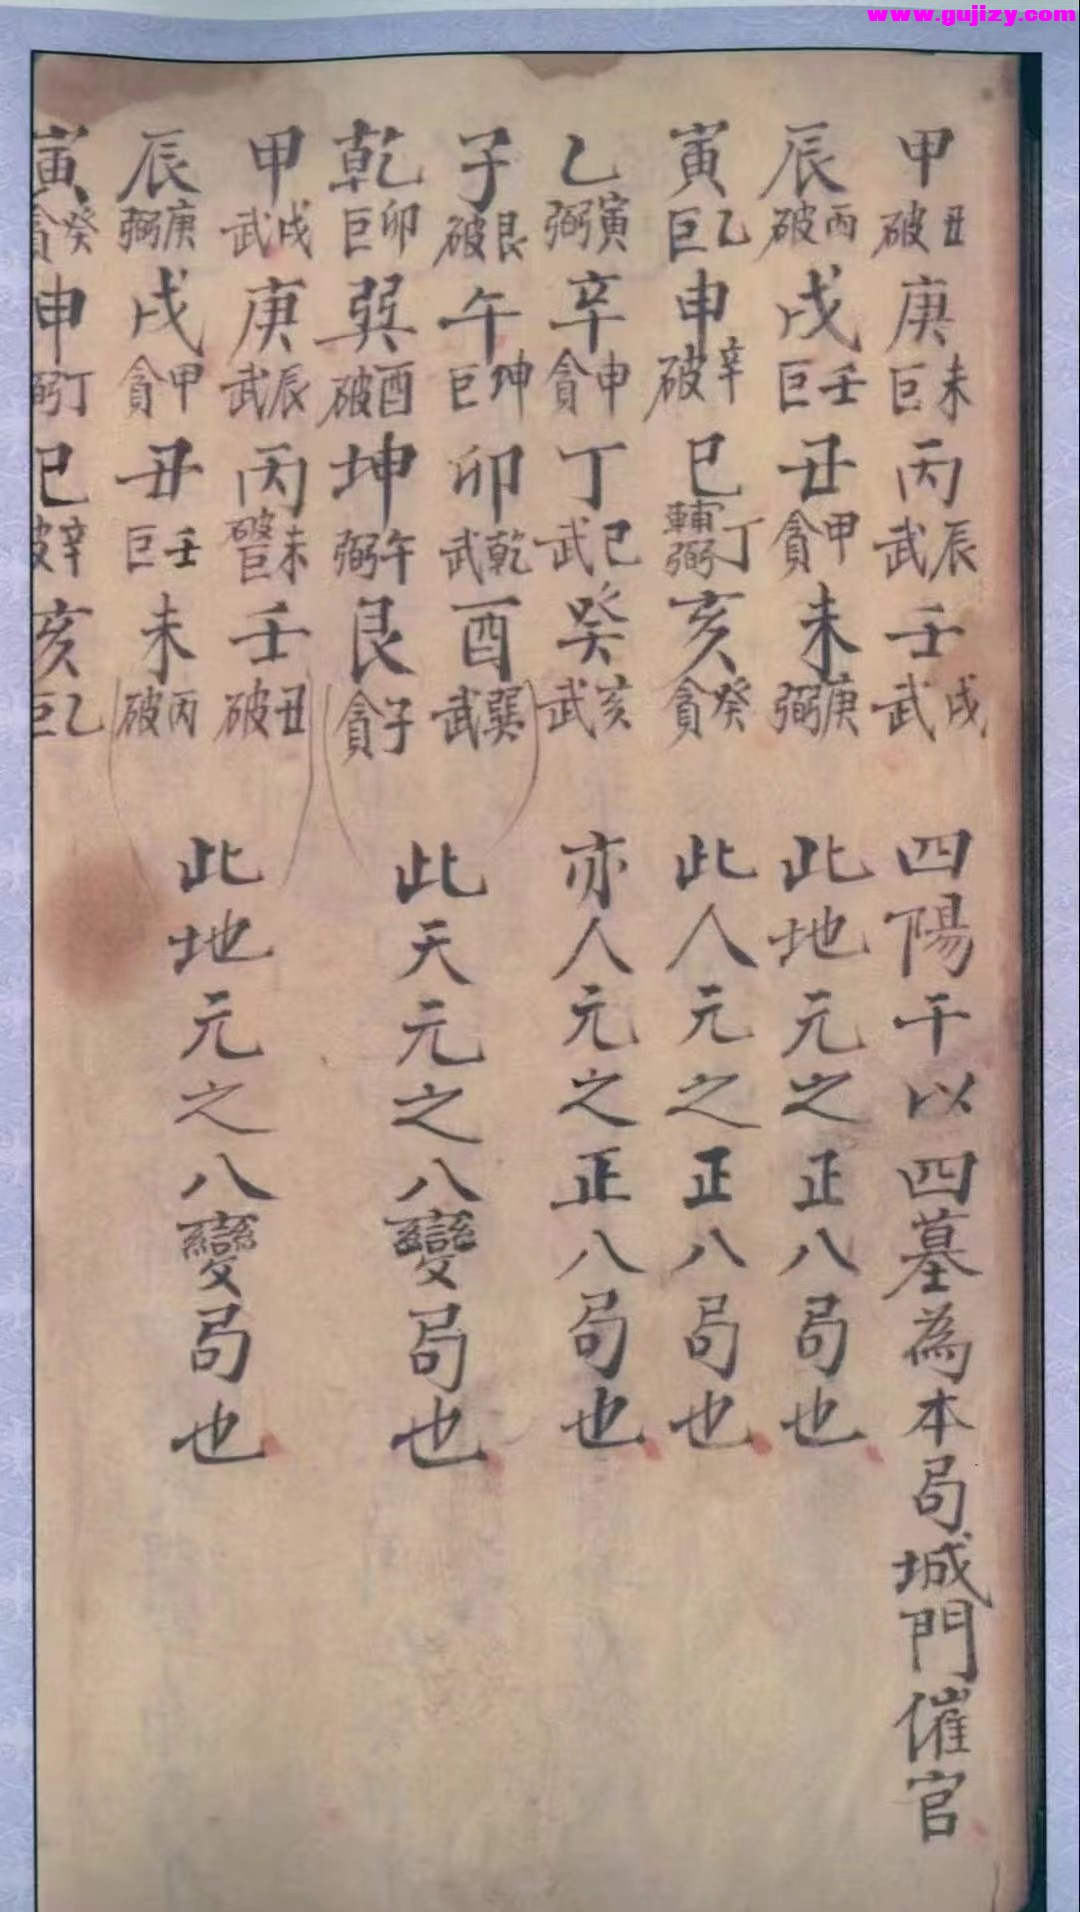 www.gujizy.com
甲 丑破 庚 未巨 丙 辰武 壬 戌武 四陽干以四墓為本局城門催官
辰 丙破 戌 壬巨 丑 甲貪 未 庚弼 此地元之正八局也
寅 乙巨 申 辛破 巳 丁輔弼 亥 癸貪 此人元之正八局也
乙 寅弼 辛 申貪 丁 巳武 癸 亥武 亦人元之正八局也
子 艮破 午 坤巨 卯 乾武 酉 巽武
乾 卯巨 巽 酉破 坤 午弼 艮 子貪
此天元之八變局也
甲 戌武 庚 辰武 丙 未破巨 壬 丑破
辰 庚弼 戌 甲貪 丑 壬巨 未 丙破
此地元之八變局也
寅 癸貪 申 丁弼 巳 辛破 亥 乙巨